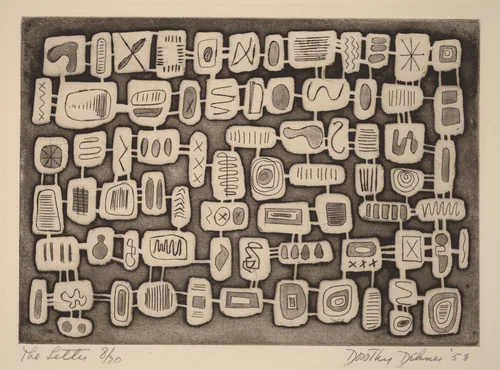 The Letter 8/20 Dorothy Dehner '53